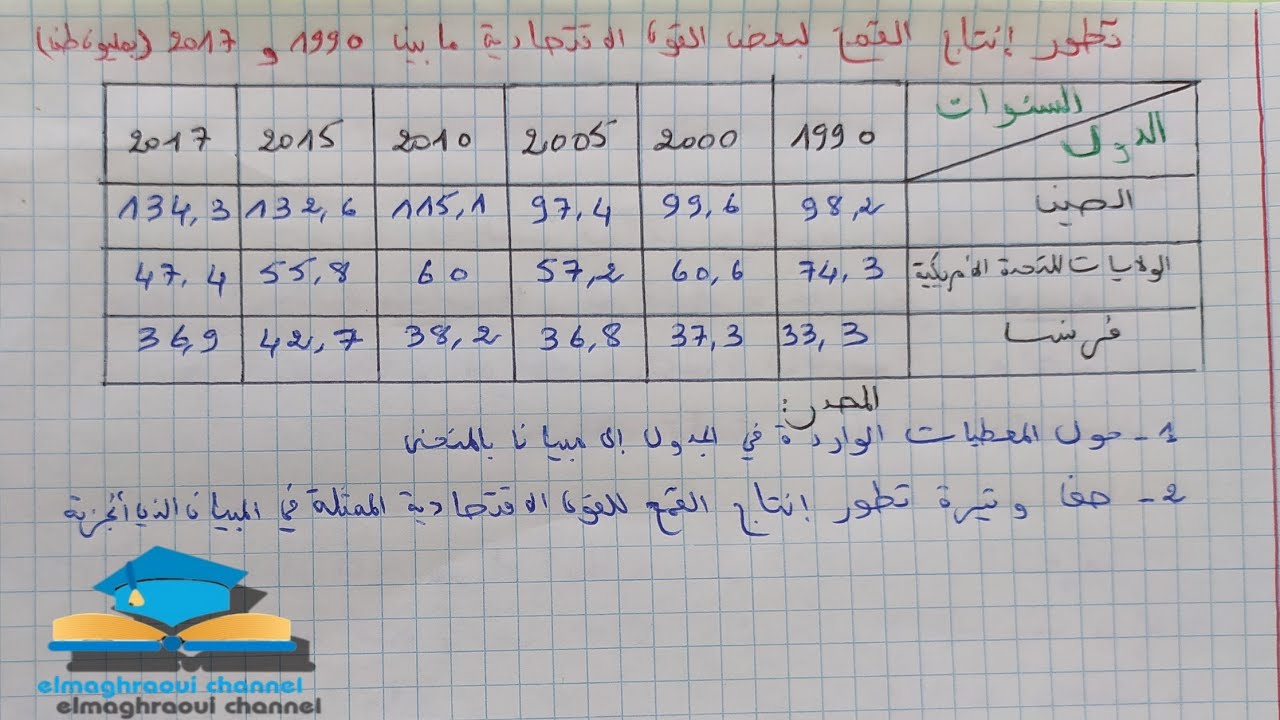 تطور إنتاج القمح لبعض القوى الاقتصادية ما بين 1990 و 2017 (بمليون طن)
السنوات
الدول
1990 2000 2005 2010 2015 2017
الصين 98,2 99,6 97,4 115,1 132,6 134,3
الولايات المتحدة الأمريكية 74,3 60,6 57,2 60 55,8 47,4
فرنسا 33,3 37,3 36,8 38,2 42,7 36,9
المصدر:
1- حول المعطيات الواردة في الجدول إلى مبيان بالمنحنى
2- صف وتيرة تطور إنتاج القمح للقوى الاقتصادية الممثلة في المبيان الذي أنجزته
elmaghraoui channel
elmaghraoui channel